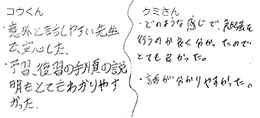 コウくん
・意外と話しやすい先生
で安心した.
・予習、復習の手順の説
明もとてもわかりやす
かった.
クミさん
・どのような感じで、勉強を
行うのか良く分かったので
とても良かった。
・話が分かりやすかった。